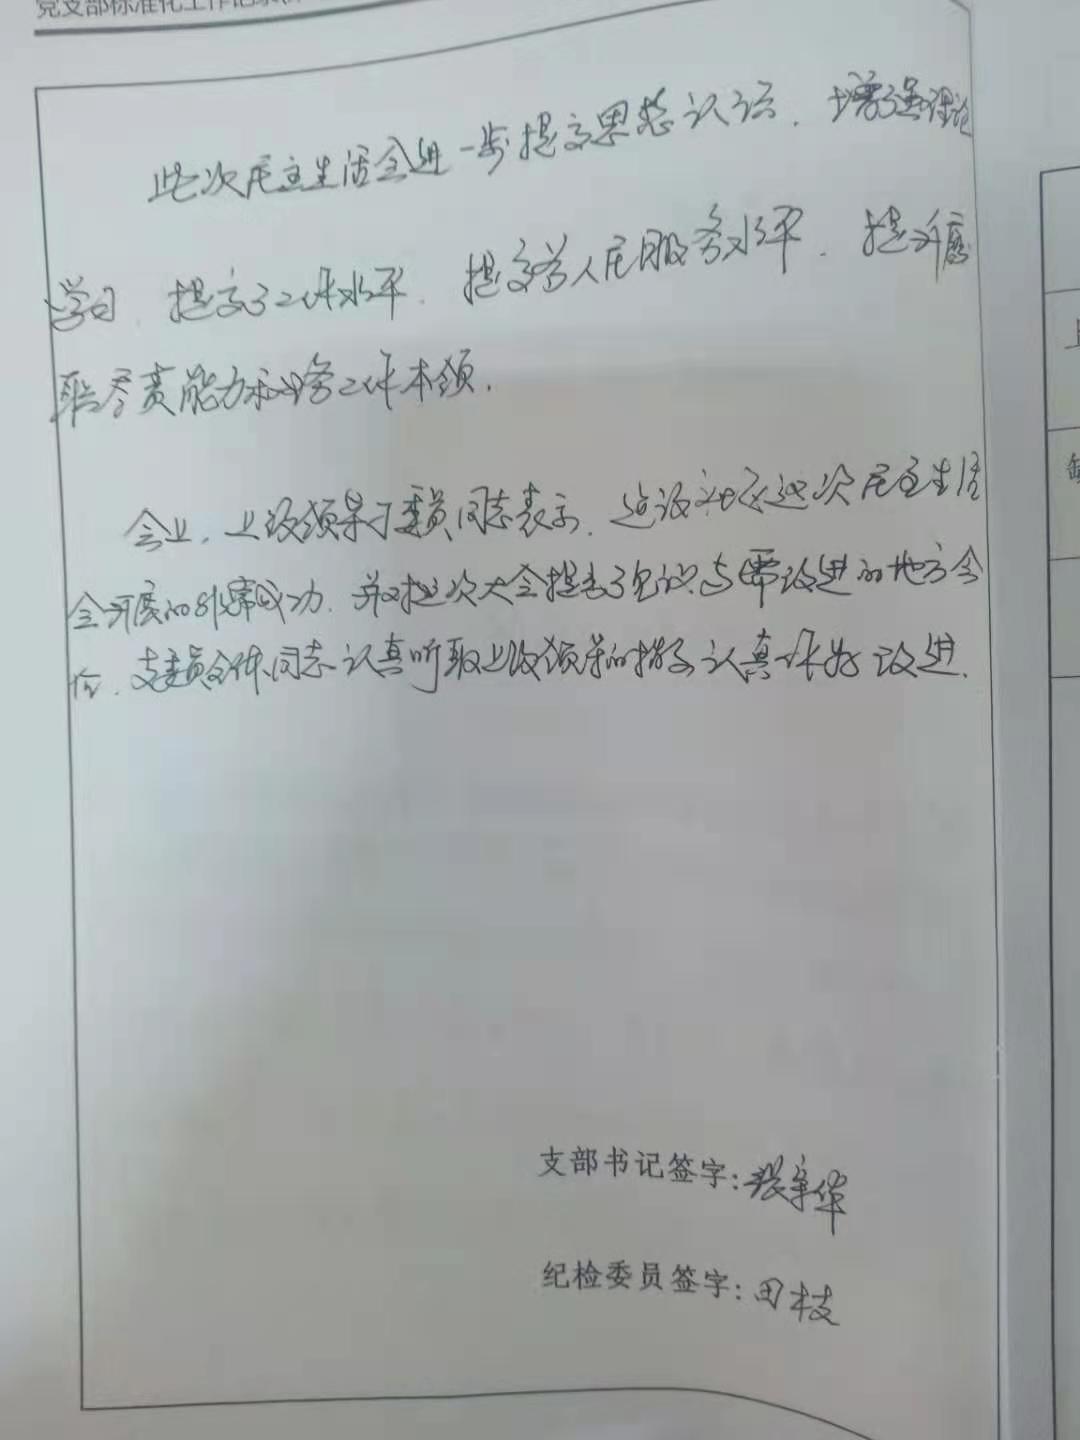 党支部标准化工作记录
此次民主生活会进一步提高思想认识、增强理论
学习、提高了工作水平、提高为人民服务水平、提升履
职尽责能力和业务工作本领。
会上,上级领导于委员同志表示,这次民主生活
会开展的非常成功,并对这次大会提出了见识与需改进的地方会
后,支委员全体同志认真听取上级领导的指导认真作好改进.
支部书记签字:
纪检委员签字:田枝